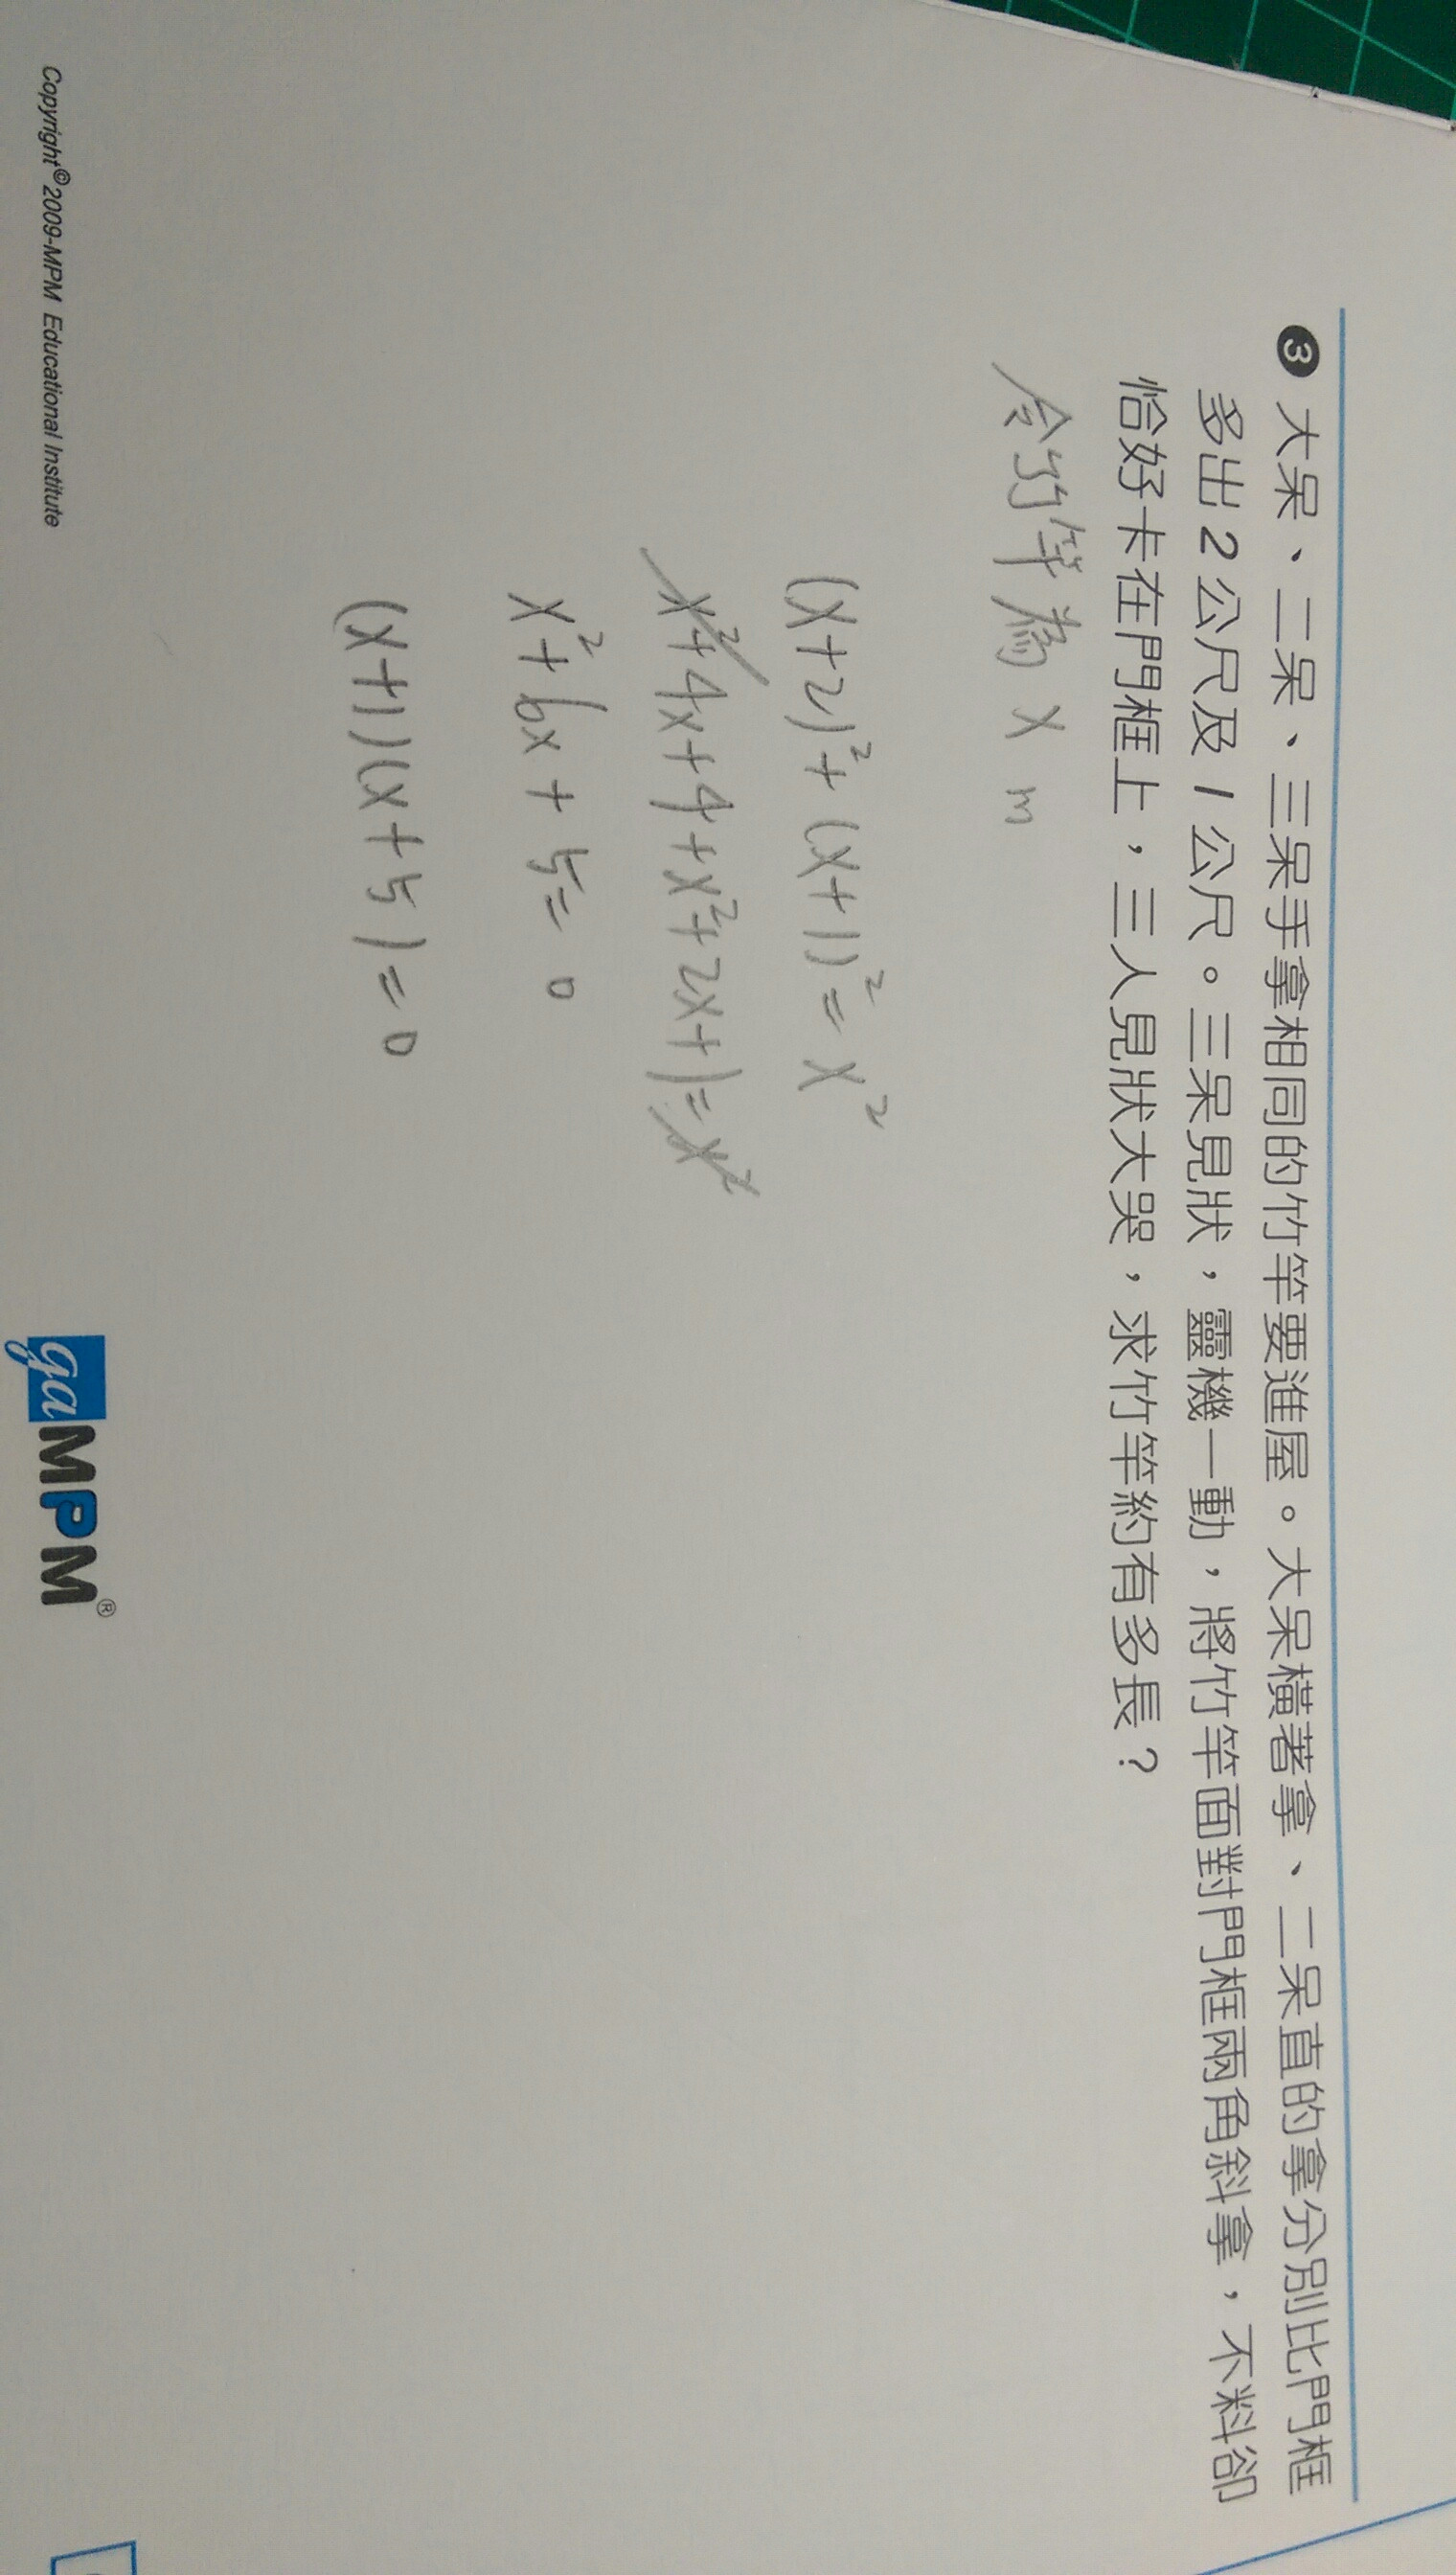 ❸ 大呆、二呆、三呆手拿相同的竹竿要進屋。大呆橫著拿、二呆直的拿分別比門框
多出 2 公尺及 1 公尺。三呆見狀，靈機一動，將竹竿面對門框兩角斜拿，不料卻
恰好卡在門框上，三人見狀大哭，求竹竿約有多長？
令竹竿為 x m
(x+2)²+(x+1)²=x²
x²+4x+4+x²+2x+1=x²
x²+6x+5=0
(x+1)(x+5)=0
Copyright©2009-MPM Educational Institute
gaMPM®